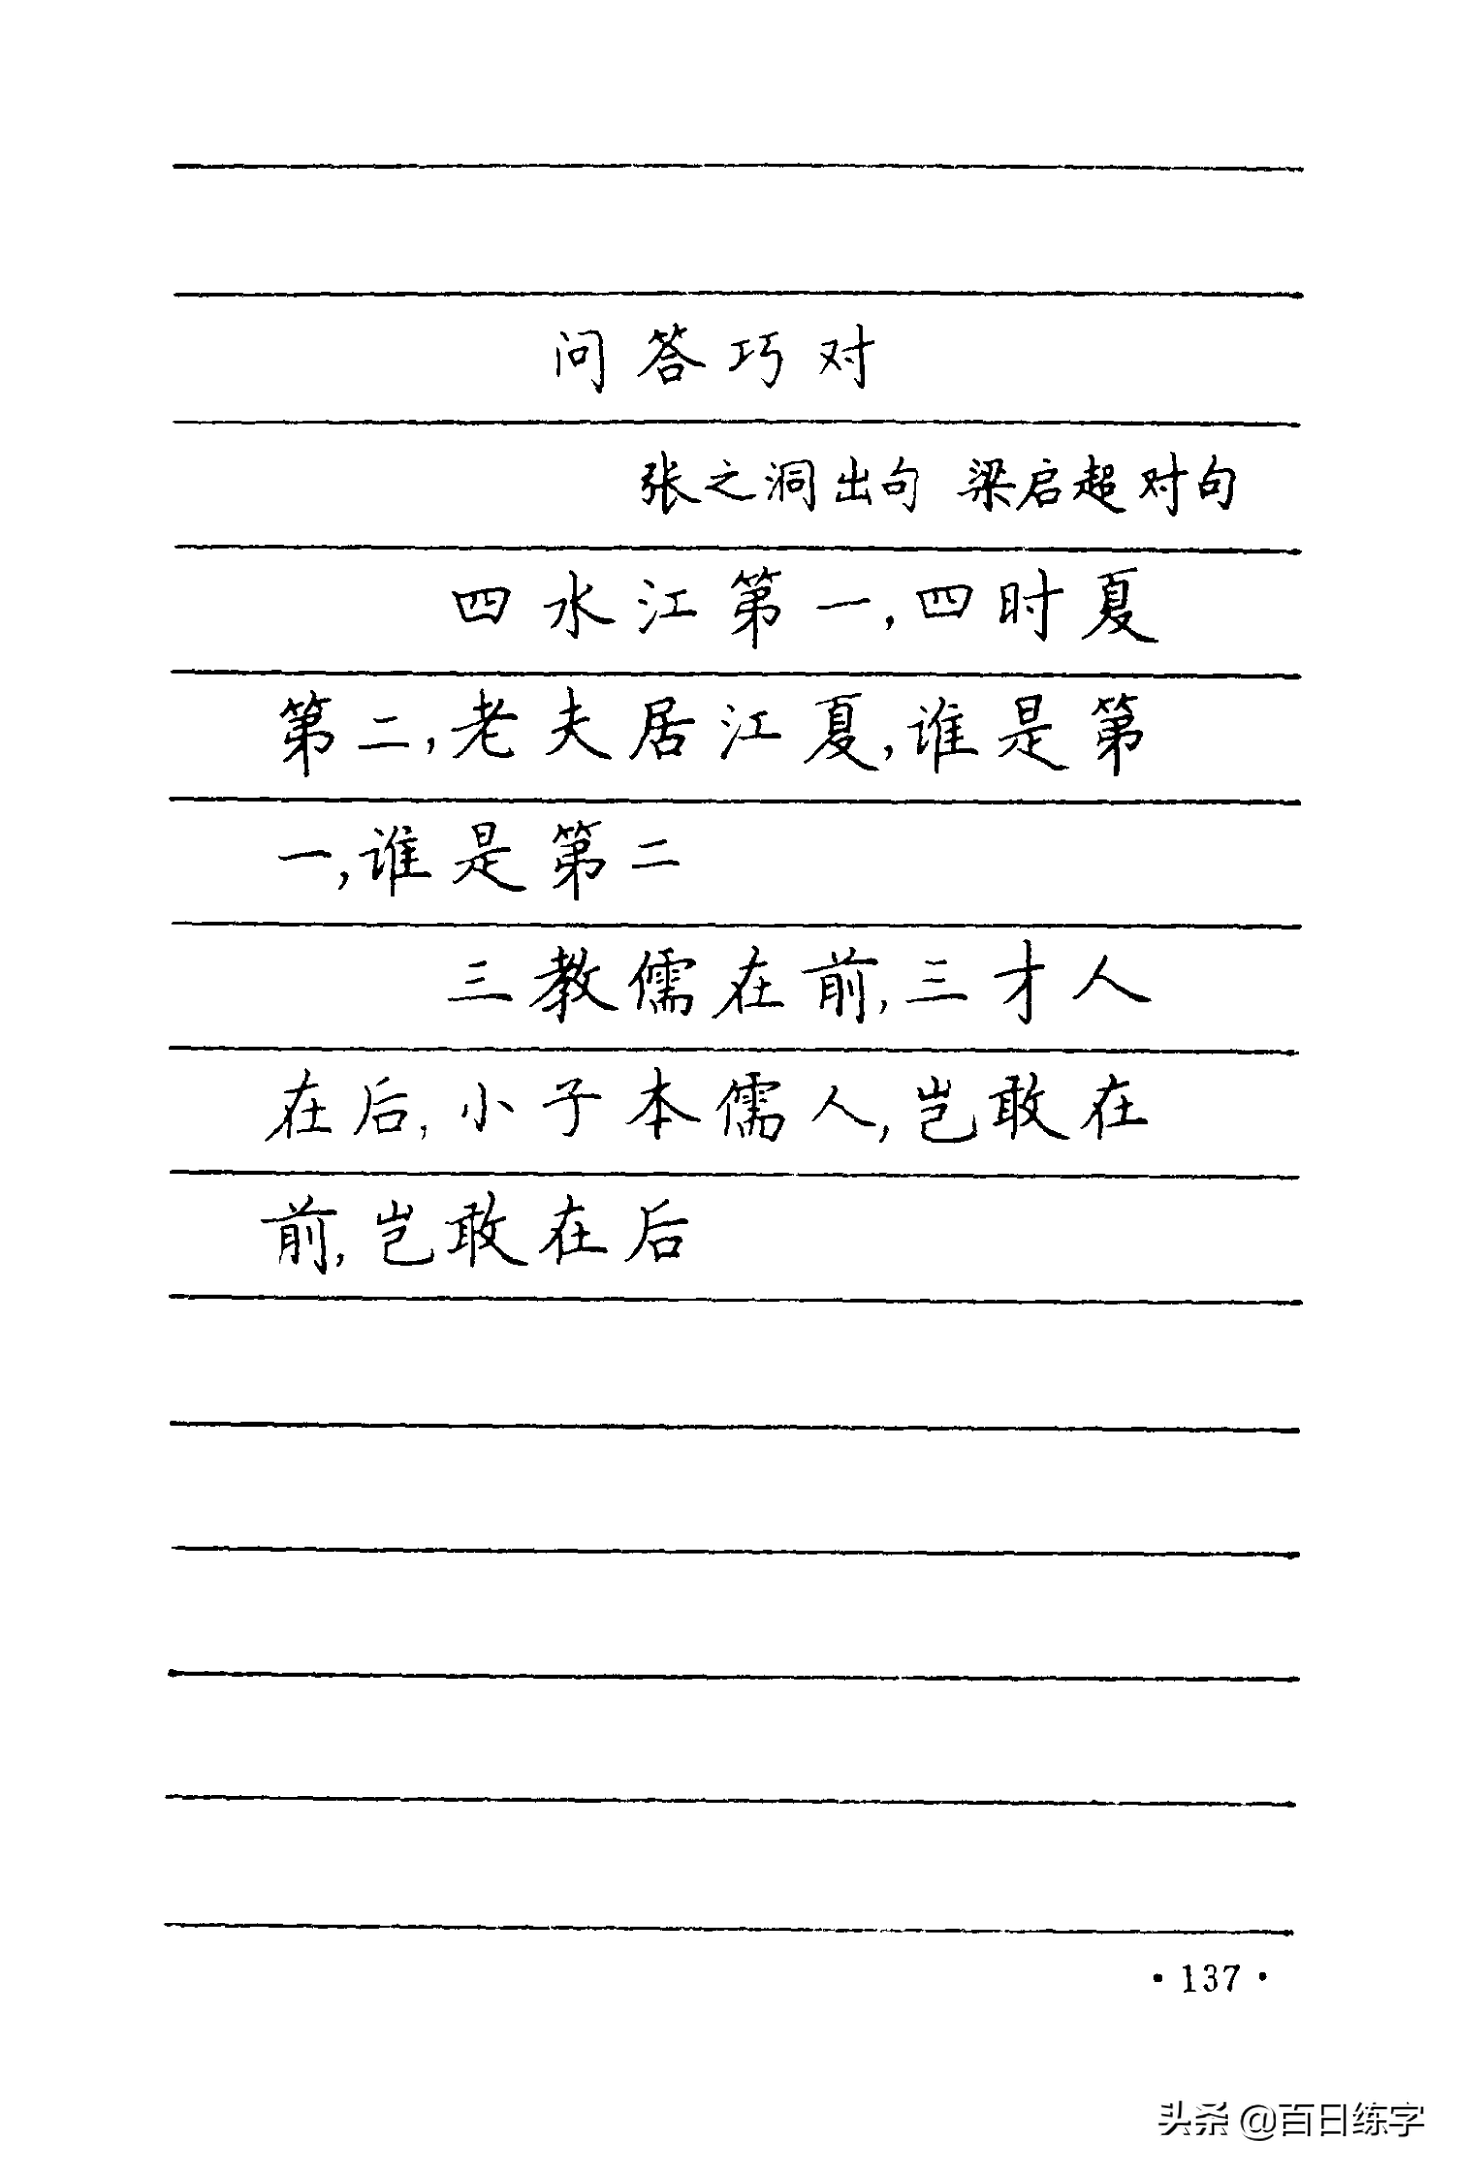 问答巧对
张之洞出句 梁启超对句
四水江第一,四时夏
第二,老夫居江夏,谁是第
一,谁是第二
三教儒在前,三才人
在后,小子本儒人,岂敢在
前,岂敢在后
·137·
头条 @百日练字